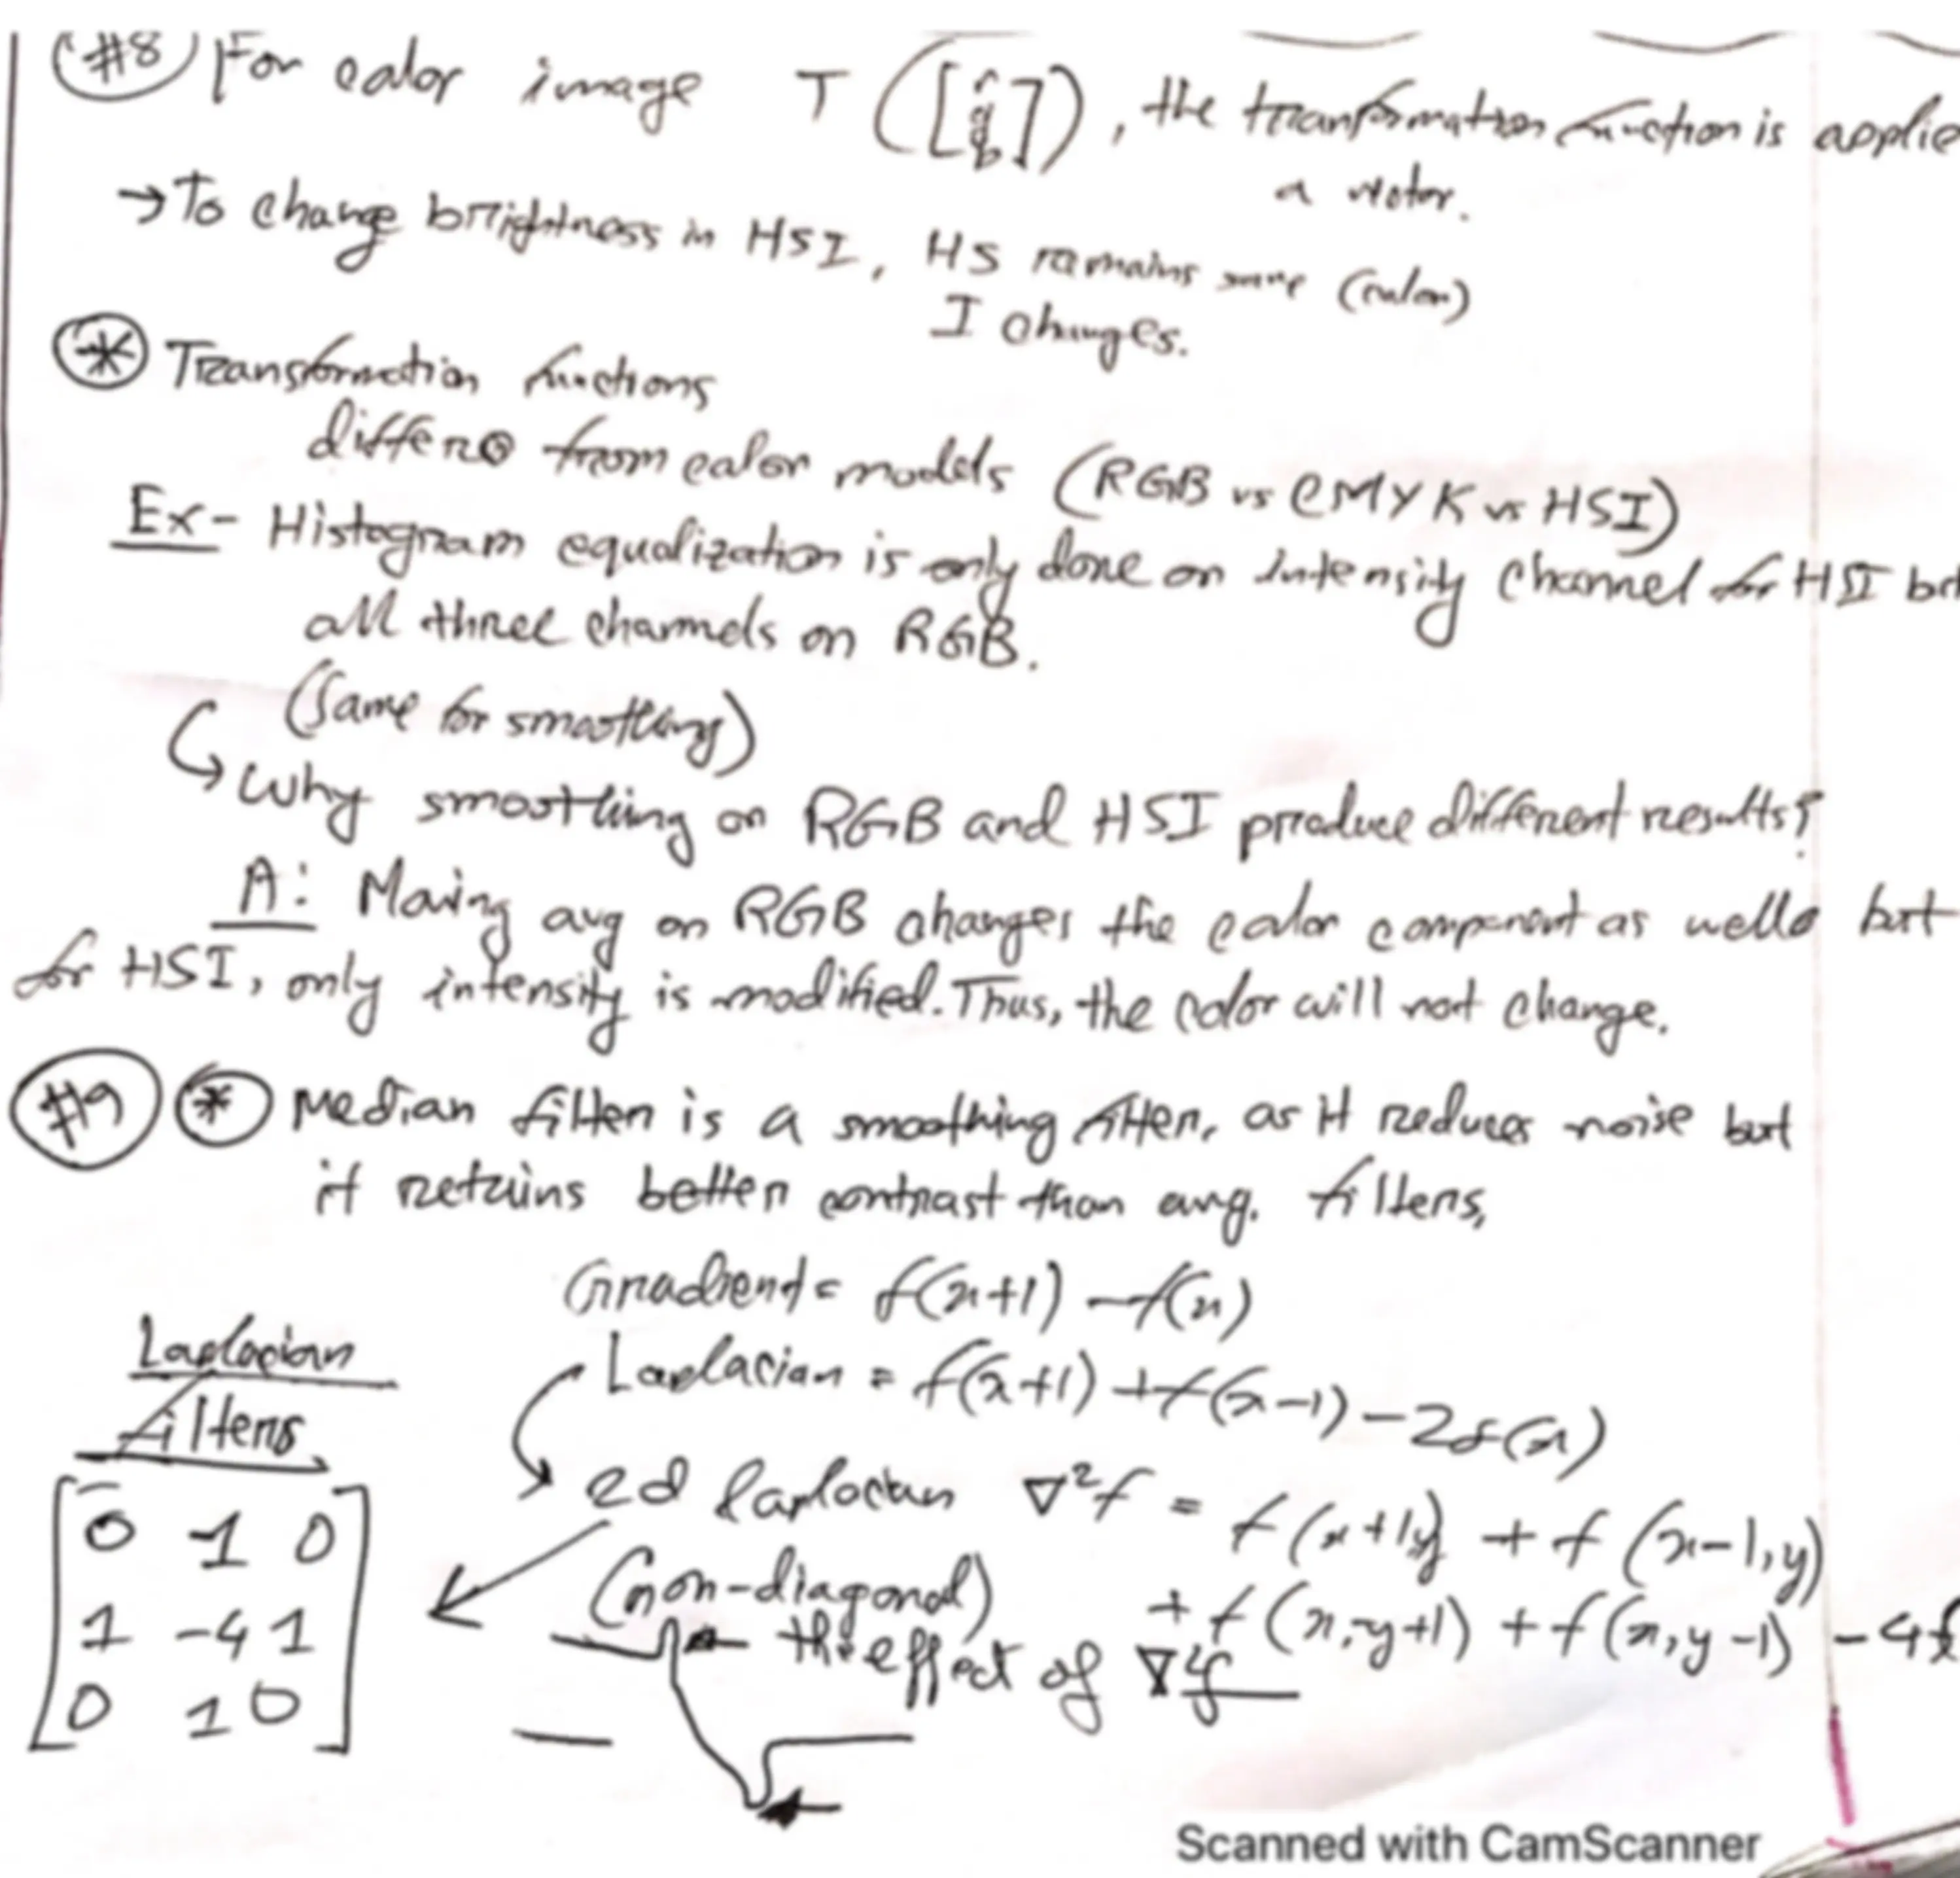 #8 For color image T([r g b]), the transformation function is applie
a vector.
→ To change brightness in HSI, HS remains same (color)
I changes.
* Transformation functions
differs from color models (RGB vs CMYK vs HSI)
Ex - Histogram equalization is only done on intensity channel for HSI but
all three channels on RGB.
(Same for smoothing)
↳ Why smoothing on RGB and HSI produce different results?
A: Moving avg on RGB changes the color component as well but
for HSI, only intensity is modified. Thus, the color will not change.
#9 * Median filter is a smoothing filter, as it reduces noise but
it retains better contrast than avg. filters,
Gradient = f(x+1) - f(x)
Laplacian = f(x+1) + f(x-1) - 2f(x)
Laplacian
filters
2d laplacian ∇²f = f(x+1,y) + f(x-1,y)
(non-diagonal) + f(x,y+1) + f(x,y-1) - 4f
0 1 0
1 -4 1
0 1 0
← the effect of ∇²f
Scanned with CamScanner